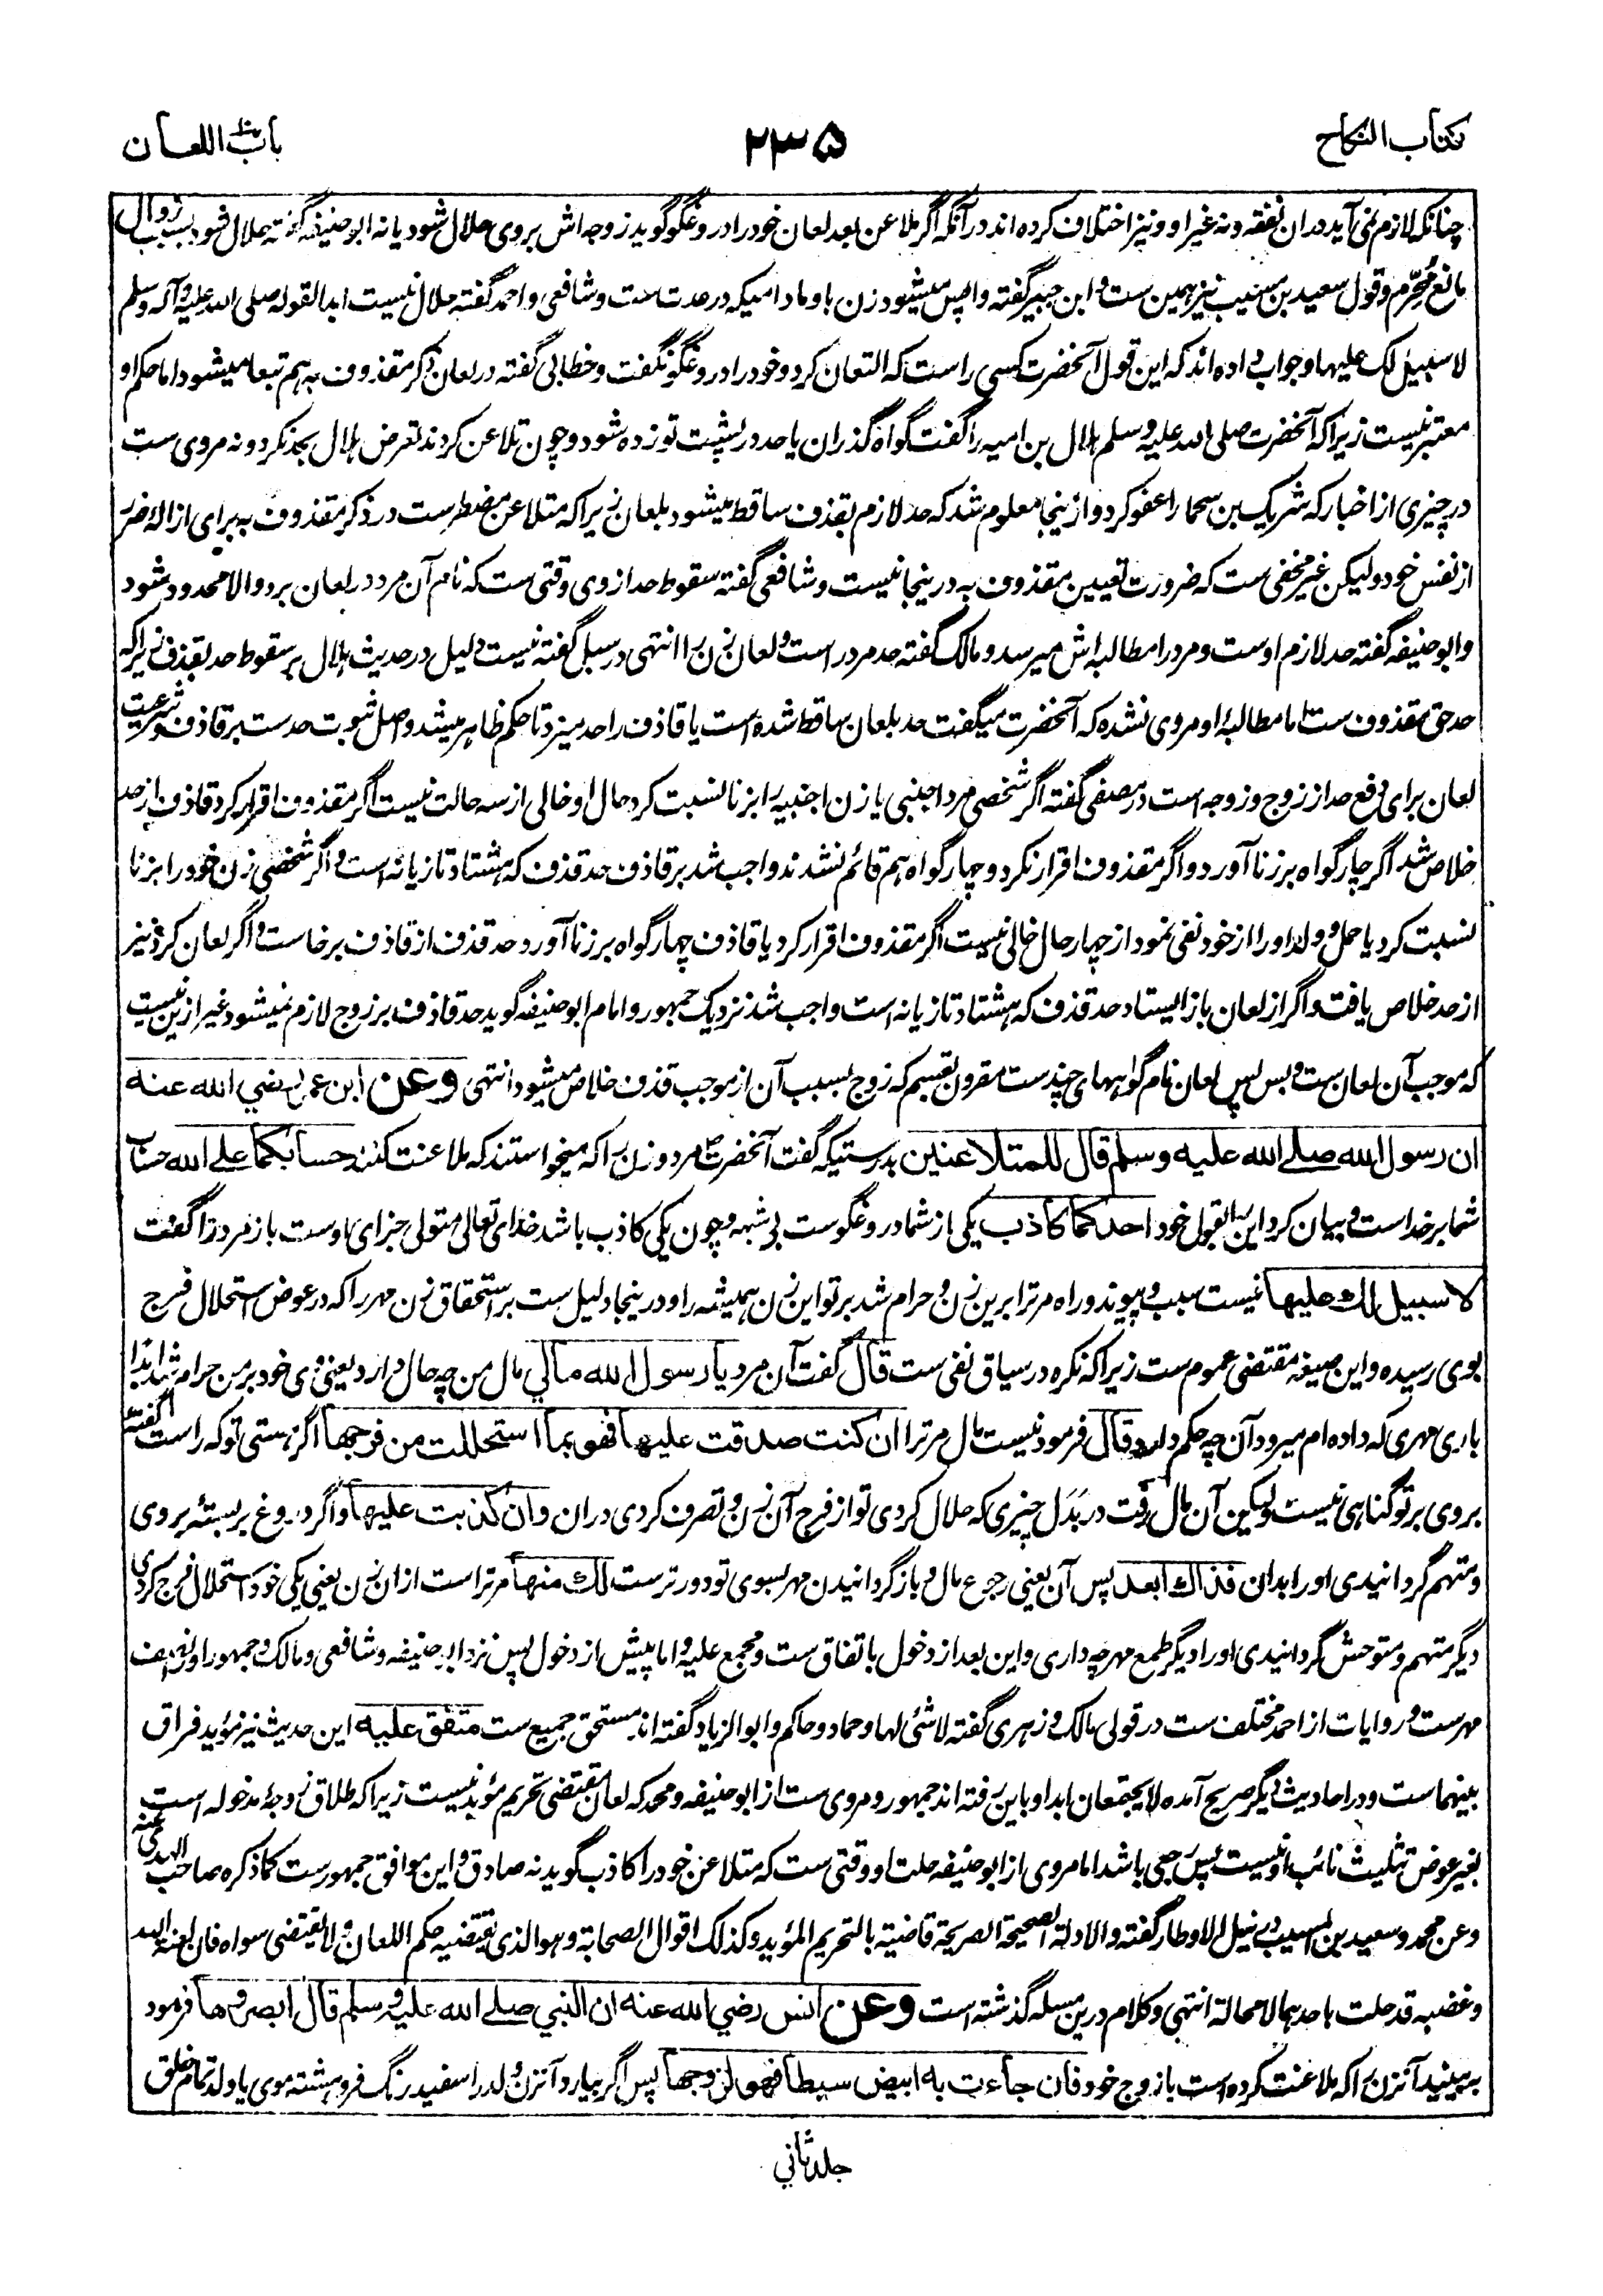 کتاب النکاح
۲۳۵
باب اللعان
چنانکه لازم نمی آید دران نفقه و نه غیر او و نیز اختلاف کرده اند در آنکه اگر ملاعن بعد لعان خود را دروغگو گوید زوجه اش بروی حلال شود یا نه ابو حنیفه گفته حلال شود بسبب زوال
مانع مُحرّم و قول سعید بن مسیب نیز همین ست و ابن جبیر گفته واپس میشود زن باو مادامیکه در عدت ست و شافعی و احمد گفته حلال نیست ابدا لقوله صلی الله علیه و آله و سلم
لا سبیل لک علیها و جواب داده اند که این قول آنحضرت کسی راست که التعان کرد و خود را دروغگو نگفت و خطابی گفته در لعان ذکر مقذوف به هم تبعا میشود اما حکم او
معتبر نیست زیرا که آنحضرت صلی الله علیه و سلم هلال بن امیه را گفت گواه گذران یا حد در پشت تو زده شود و چون تلاعن کردند تعرض هلال بحد نکرد و نه مروی ست
در چیزی از اخبار که شریک بن سحما را عفو کرد و ازینجا معلوم شد که حد لازم بقذف ساقط میشود بلعان زیرا که متلاعن مضطرست در ذکر مقذوف به برای ازاله ضرر
از نفس خود و لیکن غیر مخفی ست که ضرورت تعیین مقذوف به درینجا نیست و شافعی گفته سقوط حد از وی وقتی ست که نام آن مرد در لعان برد و الا محدود شود
و ابو حنیفه گفته حد لازم اوست و مرد را مطالبه اش میرسد و مالک گفته حد مرد راست و لعان زن را انتهی در سبل گفته نیست دلیل در حدیث هلال بر سقوط حد بقذف زیرا که
حد حق مقذوف ست اما مطالبۀ او مروی نشده که آنحضرت میگفت حد بلعان ساقط شده است یا قاذف را حد میزد تا حکم ظاهر میشد و اصل ثبوت حد ست بر قاذف و شرعیت
لعان برای دفع حد از زوج و زوجه است در مصفی گفته اگر شخصی مرد اجنبی یا زن اجنبیه را بزنا نسبت کرد حال او خالی از سه حالت نیست اگر مقذوف اقرار کرد قاذف از حد
خلاص شد اگر چار گواه بر زنا آورد و اگر مقذوف اقرار نکرد و چهار گواه هم قائم نشدند واجب شد بر قاذف حد قذف که هشتاد تازیانه است و اگر شخصی زن خود را بزنا
نسبت کرد یا حمل و ولد او را از خود نفی نمود از چهار حال خالی نیست اگر مقذوف اقرار کرد یا قاذف چهار گواه بر زنا آورد حد قذف از قاذف برخاست و اگر لعان کرد نیز
از حد خلاص یافت و اگر از لعان باز ایستاد حد قذف که هشتاد تازیانه است واجب شد نزدیک جمهور و امام ابو حنیفه گوید حد قاذف بر زوج لازم نمیشود غیر ازین نیست
که موجب آن لعان ست و بس پس لعان نام گواهیهای چند ست مقرون بقسم که زوج بسبب آن از موجب قذف خلاص میشود انتهی وعن ابن عمر رضي الله عنه
ان رسول الله صلے الله علیه وسلم قال للمتلاعنین بدرستیکه گفت آنحضرت مر مرد و زن را که میخواستند که ملاعنت کنند حسابکما علے الله حساب
شما بر خداست و بیان کرد این را بقول خود احدکما کاذب یکی از شما دروغگوست بی شبهه و چون یکی کاذب باشد خدای تعالی متولی جزای اوست باز مرد را گفت
لا سبیل لك علیها نیست سبب و پیوند و راه مر ترا برین زن و حرام شد بر تو این زن همیشه را و درینجا دلیل ست بر استحقاق زن مهر را که در عوض استحلال فرج
بوی رسیده و این صیغه مقتضی عموم ست زیرا که نکره در سیاق نفی ست قال گفت آن مرد یا رسول الله مالي مال من چه حال دارد یعنی وی خود بر من حرام شد ابدا
باری مهری که داده ام میرود آن چه حکم دارد قال فرمود نیست مال مر ترا ان کنت صدقت علیها فهو بما استحللت من فرجها اگر هستی تو که راست گفته
بر وی بر تو گناهی نیست و لیکن آن مال رفت در بَدَل چیزی که حلال کردی تو از فرج آن زن و تصرف کردی دران وان کذبت علیها و اگر دروغ بر بستۀ بر وی
و متهم گردانیدی او را بدان فذاك ابعد پس آن یعنی رجوع مال و باز گردانیدن مهر بسوی تو دور ترست لك منها مر ترا است ازان زن یعنی یکی خود استحلال فرج کردی
دیگر متهم و متوحش گردانیدی او را دیگر طمع مهر چه داری و این بعد از دخول باتفاق ست و مجمع علیه و اما پیش از دخول پس نزد ابو حنیفه و شافعی و مالک و جمهور او را نصف
مهرست و روایات از احمد مختلف ست در قولی مالک و زهری گفته لا شئ لها و حماد و حاکم و ابو الزیاد گفته اند مستحق جمیع ست متفق علیه این حدیث نیز مؤید فراق
بینهما ست و در احادیث دیگر صریح آمده لا یجتمعان ابدا و باین رفته اند جمهور و مروی ست از ابو حنیفه و محمد که لعان مقتضی تحریم مؤبد نیست زیرا که طلاق زوجۀ مدخوله است
بغیر عوض تثلیث نائب او نیست پس رجعی باشد اما مروی از ابو حنیفه حلت او وقتی ست که متلاعن خود را کاذب گوید نه صادق و این موافق جمهور ست کما ذکره صاحب الهدی عنه
و عن محمد و سعید بن المسیب در نیل الاوطار گفته و الادلة الصحیحة الصریحة قاضیة بالتحریم المؤبد و کذلک اقوال الصحابة و هو الذی یقتضیه حکم اللعان و لا یقتضی سواه فان لعنة الله
و غضبه قد حلت باحدهما لا محالة انتهی و کلام درین مسله گذشته است وعن انس رضي الله عنه ان النبي صلے الله علیه وسلم قال ابصروها فرمود
به بینید آنزن را که ملاعنت کرده است با زوج خود فان جاءت به ابیض سبطا فهو لزوجها پس اگر بیارد آنزن ولد را سفید رنگ فروهشته موی یا ولد تمام خلق
جلد ثانی